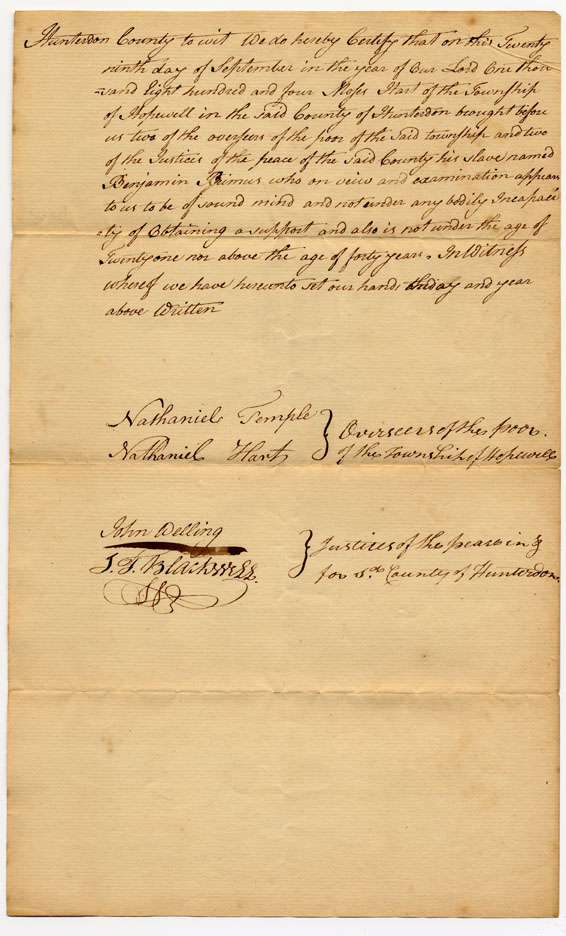 Hunterdon County to wit We do hereby Certify that on this Twenty
ninth day of September in the year of Our Lord One thou
=sand Eight hundred and four Moses Hart of the Township
of Hopewell in the said County of Hunterdon brought before
us two of the overseers of the poor of the said township and two
of the Justices of the peace of the said County his slave named
Benjamin Primus who on view and examination appears
to us to be of sound mind and not under any bodily Incapaci
=ty of Obtaining a support and also is not under the age of
Twenty one nor above the age of forty years. In Witness
whereof we have hereunto set our hands the day and year
above Written
Nathaniel Temple } Overseers of the poor.
Nathaniel Hart of the Township of Hopewell
John Welling } Justices of the peace in &
J. F. Blackwell for sd. County of Hunterdon.